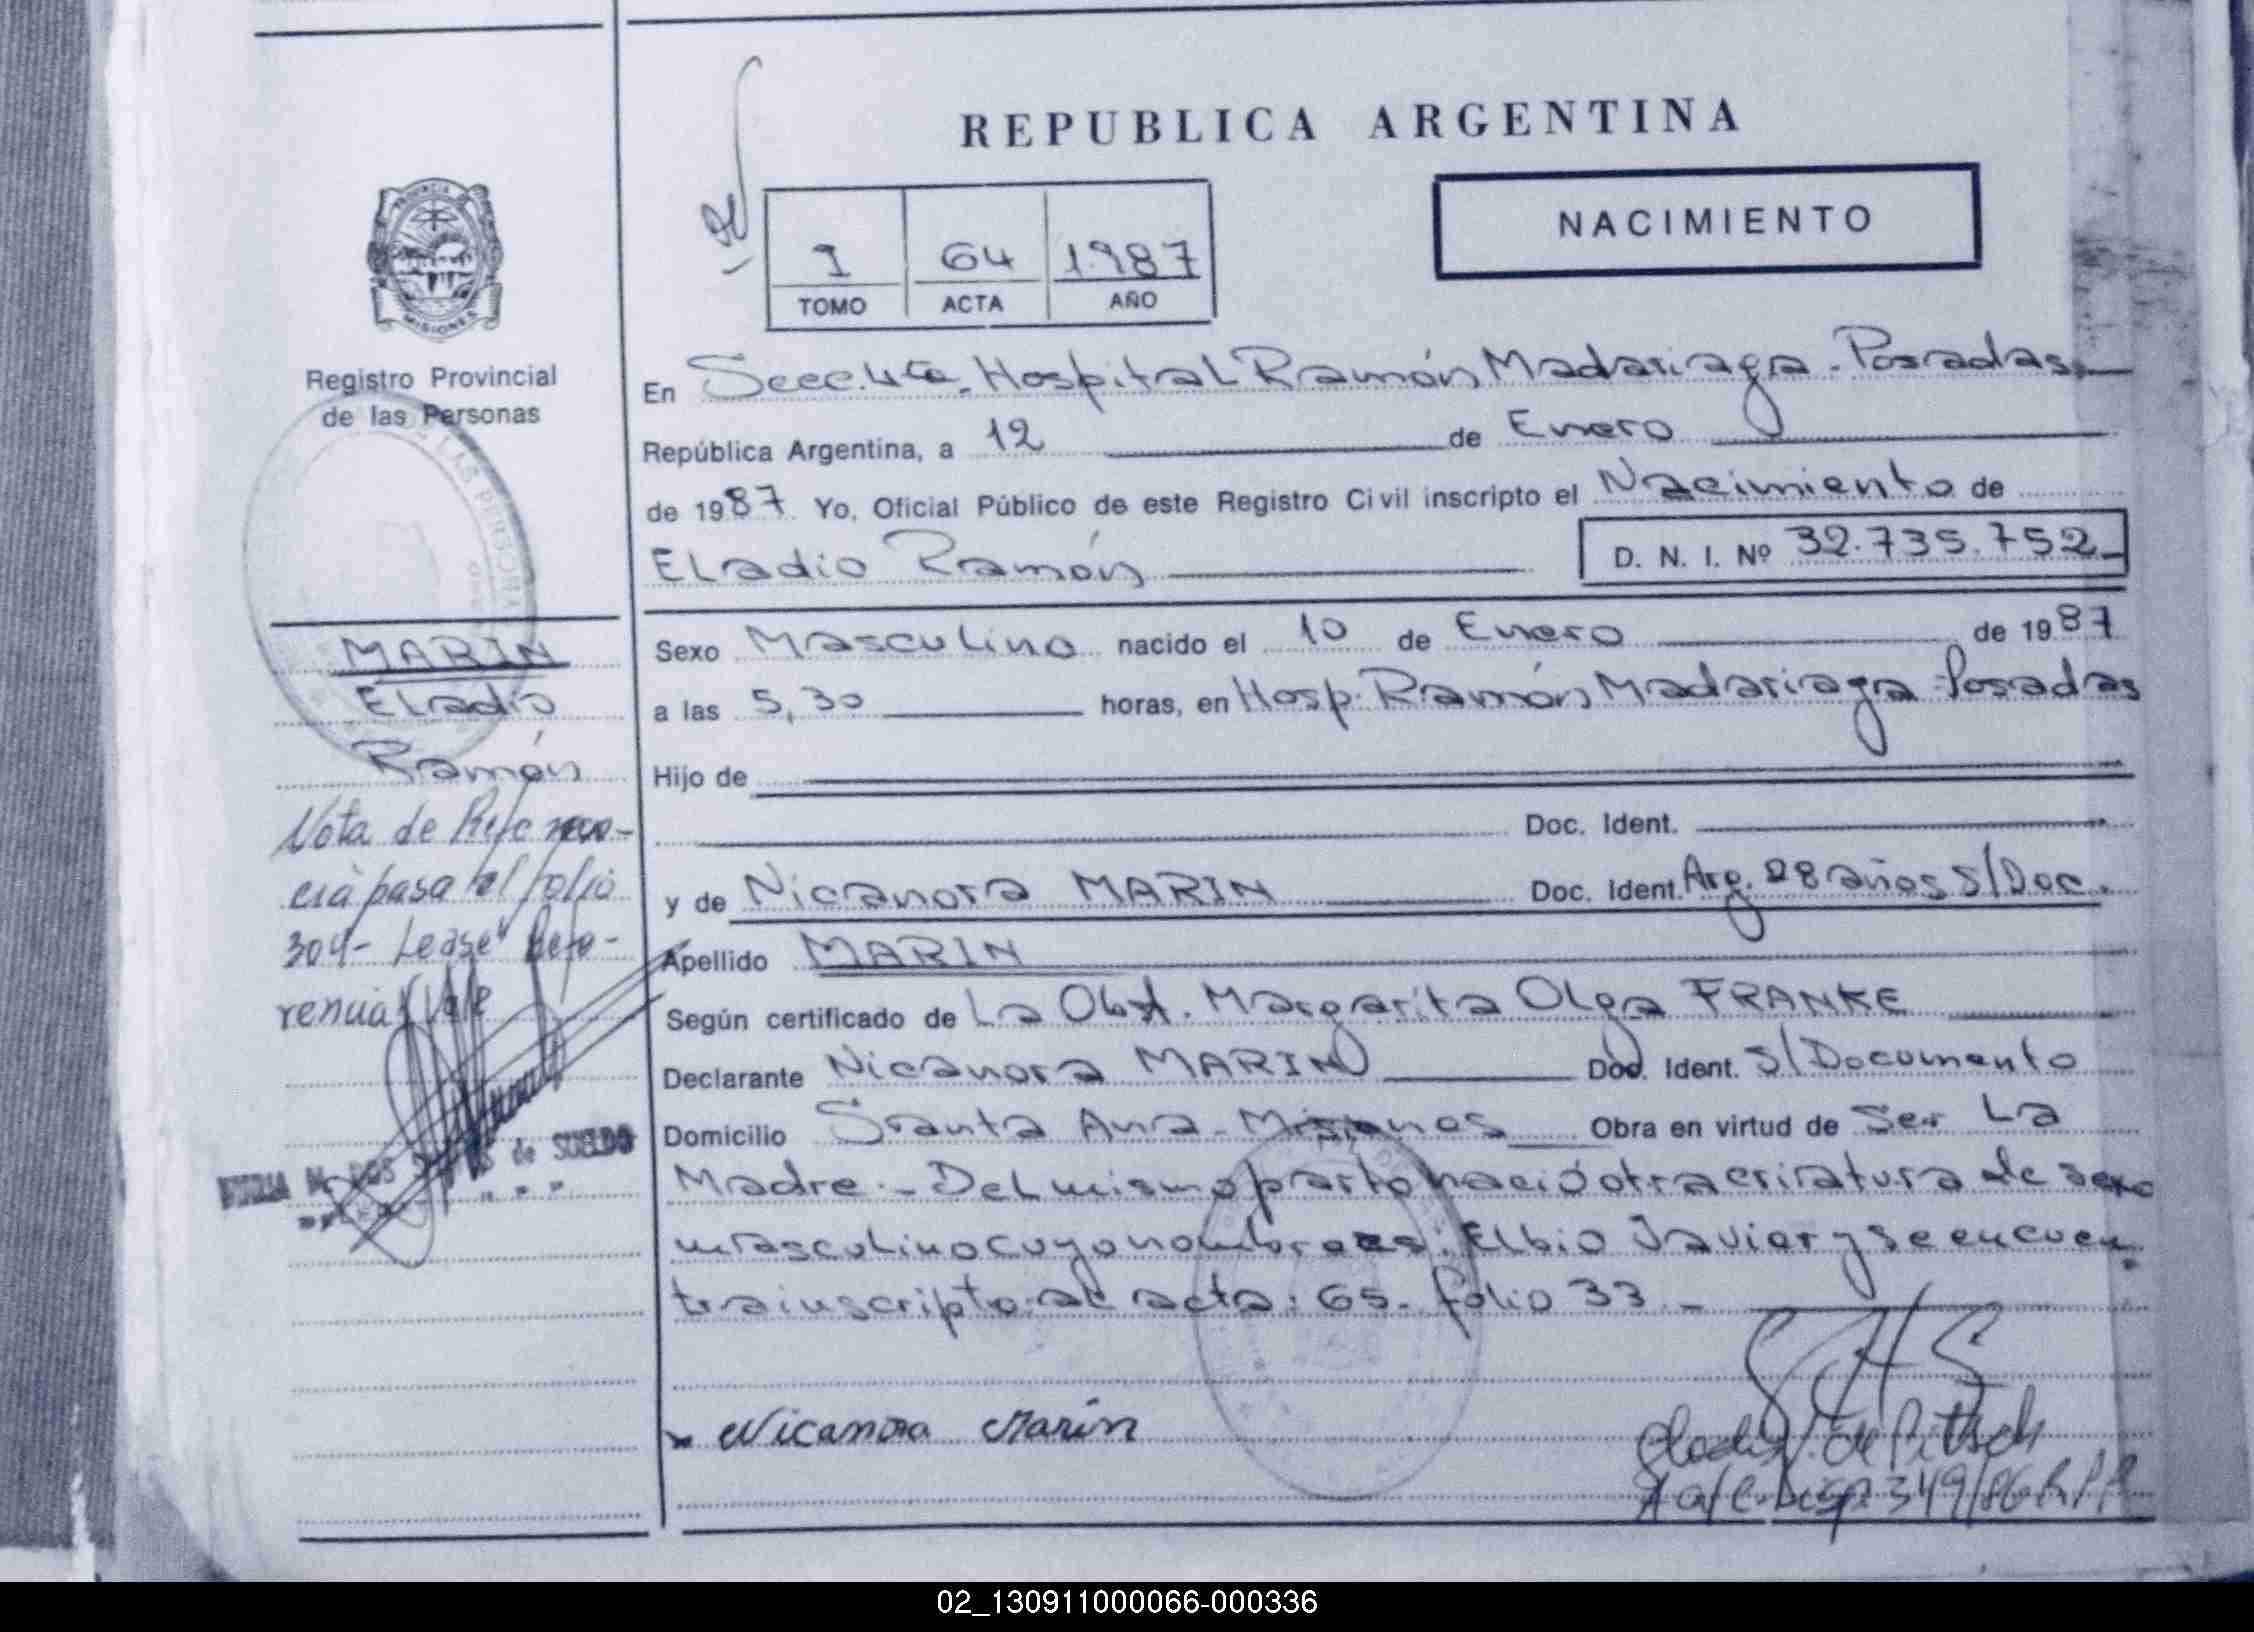 REPUBLICA ARGENTINA
NACIMIENTO
1 64 1.987
TOMO ACTA AÑO
PROVINCIA
MISIONES
Registro Provincial
de las Personas
En Secc. 4ta. Hospital Ramón Madariaga - Posadas
República Argentina, a 12 de Enero
de 1987. Yo, Oficial Público de este Registro Civil inscripto el Nacimiento de
Eladio Ramón D. N. I. Nº 32.735.752
Sexo Masculino nacido el 10 de Enero de 1987
a las 5,30 horas, en Hosp. Ramón Madariaga - Posadas
Hijo de
Doc. Ident.
y de Nicanora MARIN Doc. Ident. Arg. 28 años S/Doc.
Apellido MARIN
Según certificado de La Obst. Margarita Olga FRANKE
Declarante Nicanora MARIN Doc. Ident. S/Documento
Domicilio Santa Ana - Misiones Obra en virtud de Ser La
Madre.- Del mismo parto nació otra criatura de sexo
masculino cuyo nombre es: Elbio Javier y se encuen
tra inscripto al acta: 65- folio 33.-
Nicanora Marin
MARIN
Eladio
Ramón
Nota de Refe
cia pasa al folio
304- Lease Refe-
rencia Vale
de SUELDO
02_130911000066-000336